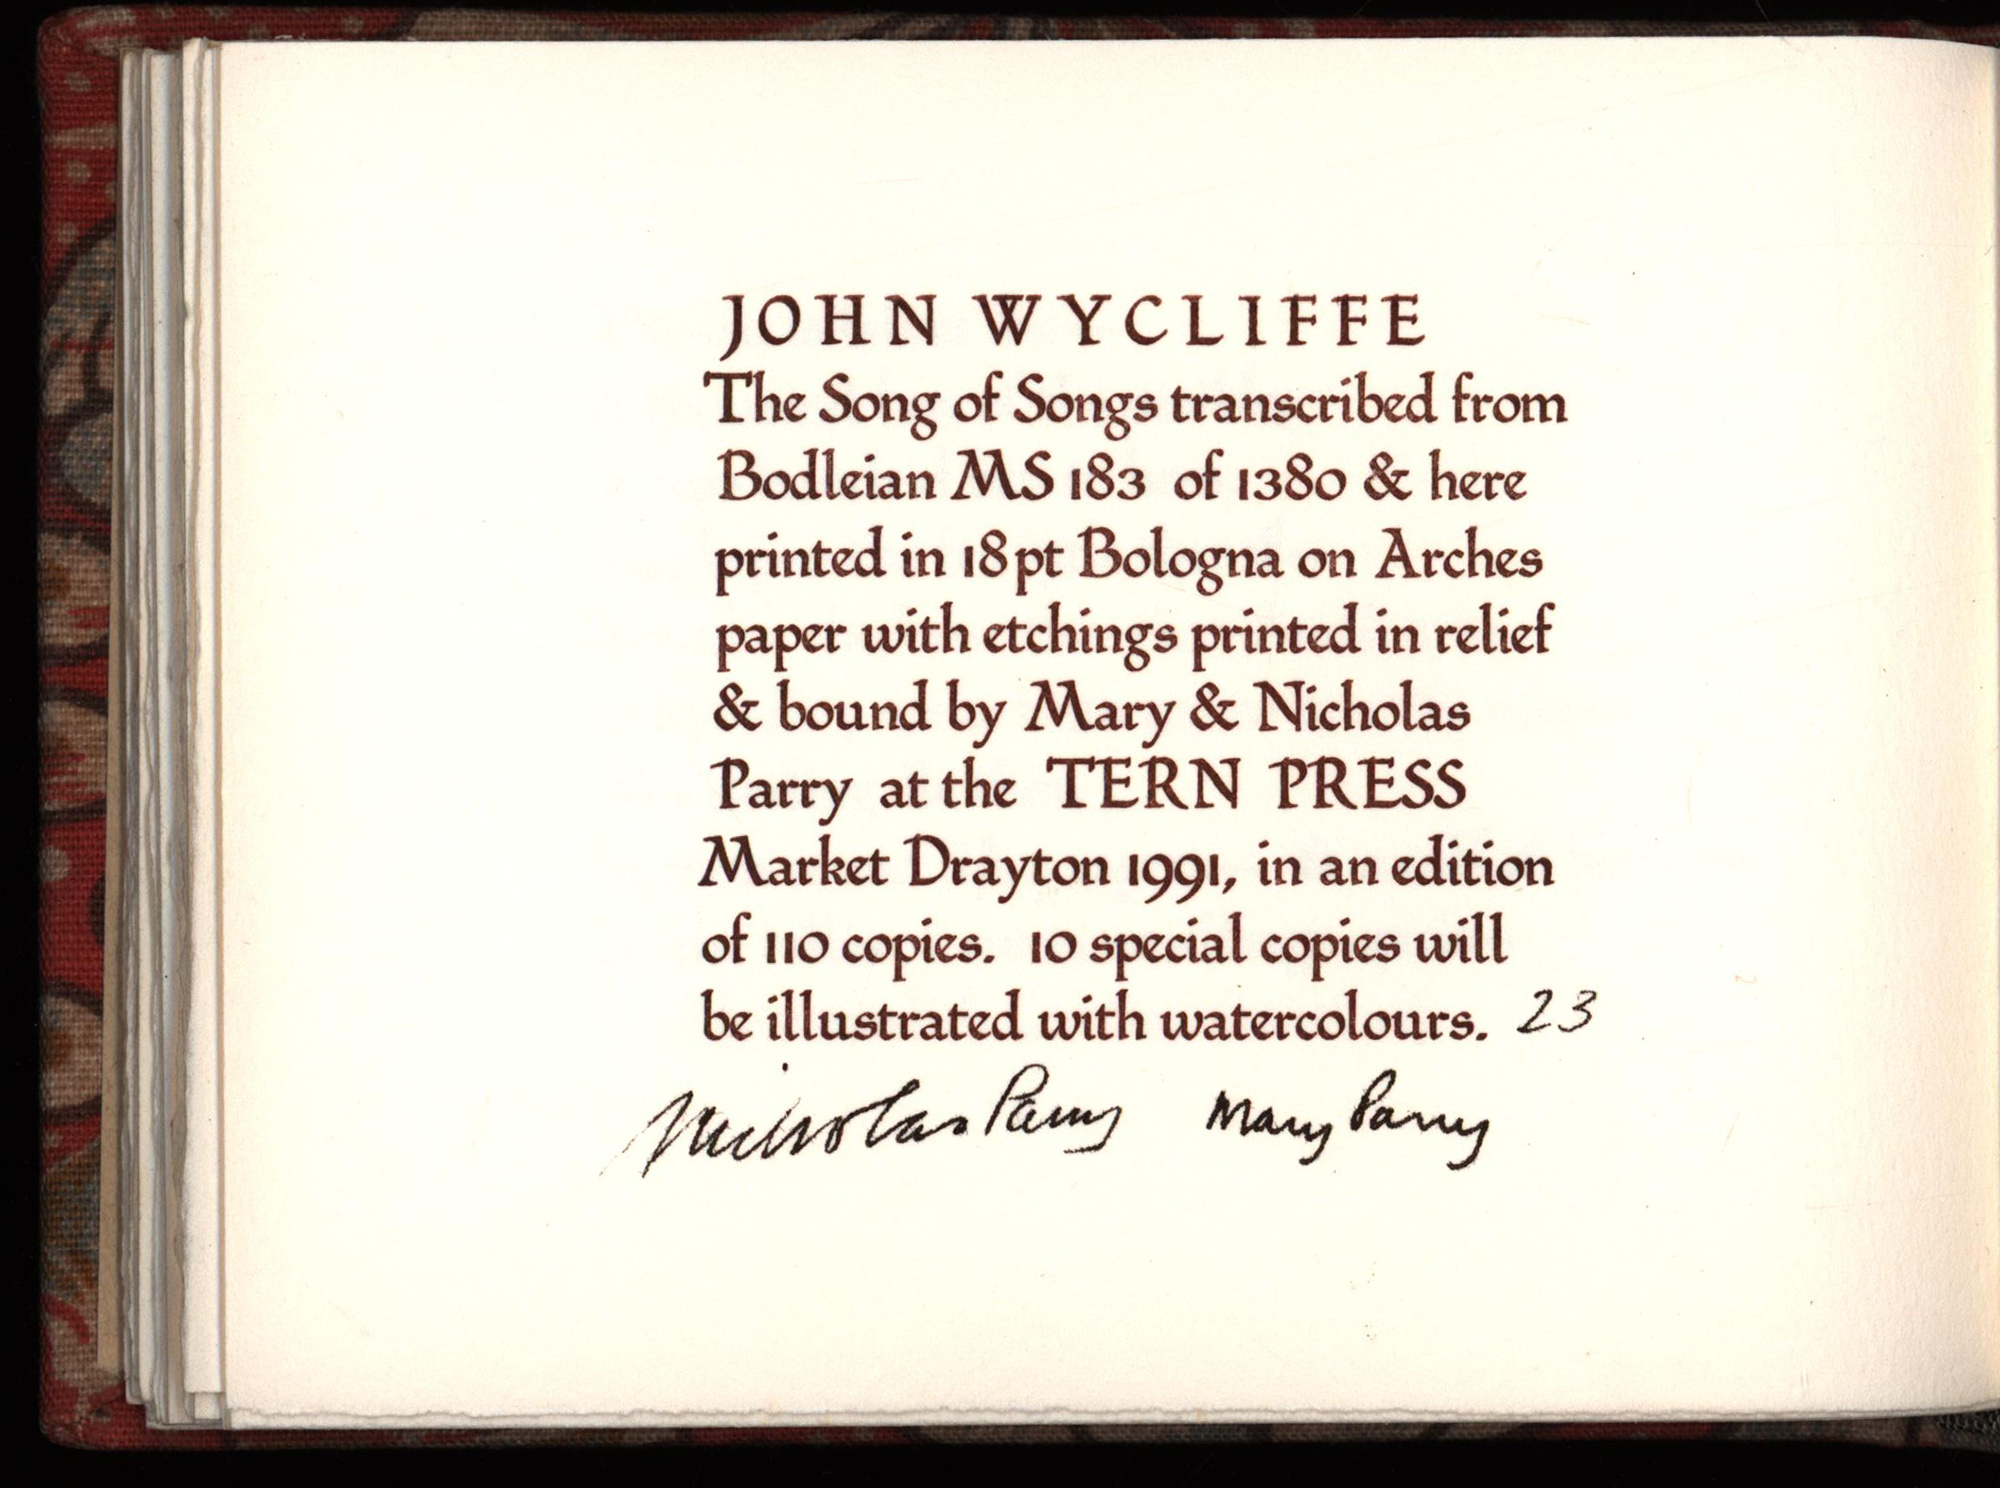 JOHN WYCLIFFE
The Song of Songs transcribed from
Bodleian MS 183 of 1380 & here
printed in 18pt Bologna on Arches
paper with etchings printed in relief
& bound by Mary & Nicholas
Parry at the TERN PRESS
Market Drayton 1991, in an edition
of 110 copies. 10 special copies will
be illustrated with watercolours. 23
Nicholas Parry Mary Parry